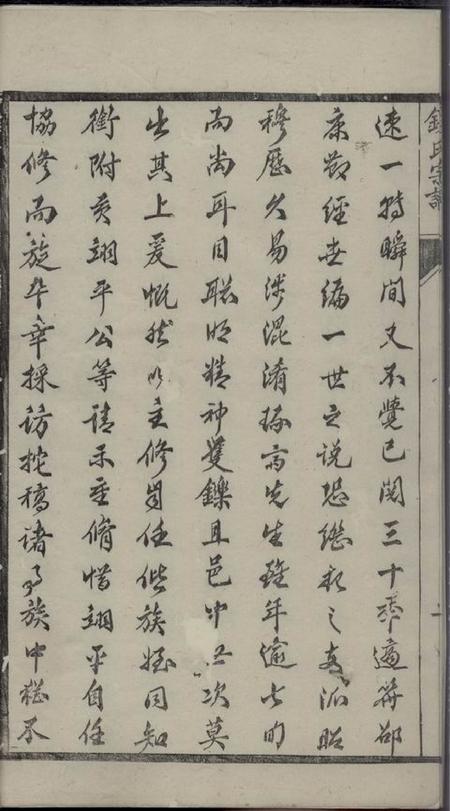 鍾氏宗譜
速一特瞬間又不覺已閱三十年適符邵
康節經世編一世之說恐繼起之支派昭
穆歷久易涉混淆琢高先生雖年逾七旬
而尚耳目聰明精神矍鑠且邑中品次莫
出其上爰慨然以主修自任偕族姪同知
銜附貢翊平公等請示重脩惜翊平自任
協修而旋卒幸採訪抄稿諸事族中穀不